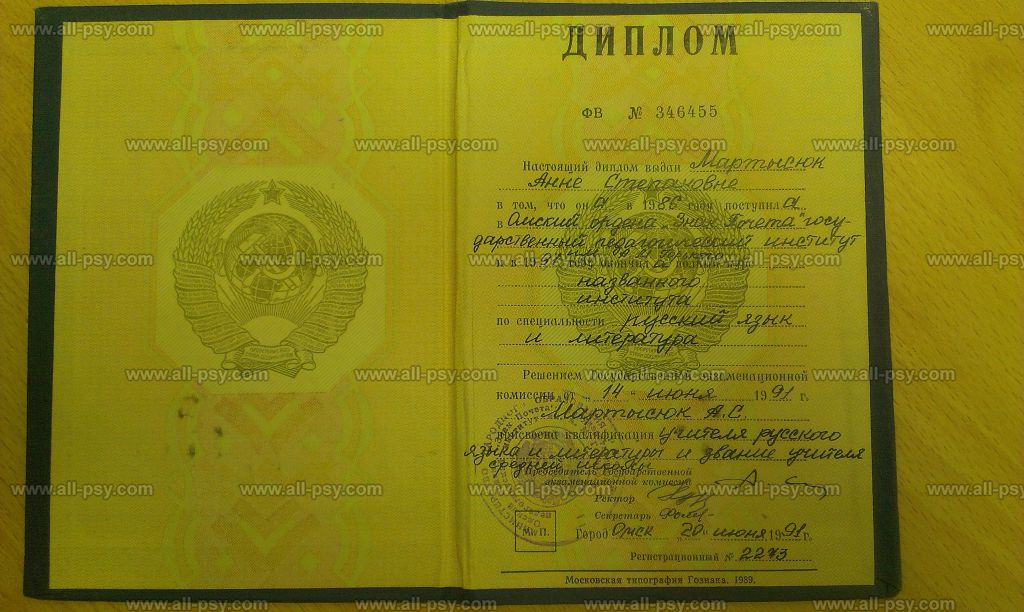 ДИПЛОМ
ФВ № 346455
Настоящий диплом выдан Мартысюк
Анне Степановне
в том, что она в 1986 году поступила
в Омский ордена „Знак Почета" госу-
дарственный педагогический институт
и в 1991 году окончила полный курс
названного
института
по специальности русский язык
и литература
Решением Государственной экзаменационной
комиссии от „14" июня 1991 г.
Мартысюк А.С.
присвоена квалификация учителя русского
языка и литературы и звание учителя
средней школы
Председатель Государственной
экзаменационной комиссии
Ректор
Секретарь
М. П. Город Омск 20 июня 1991 г.
Регистрационный № 2273
Московская типография Гознака. 1989.
www.all-psy.com